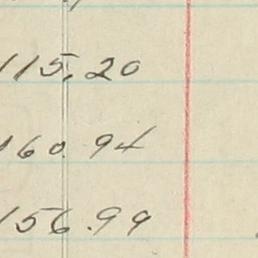 115.20
160.94
156.99